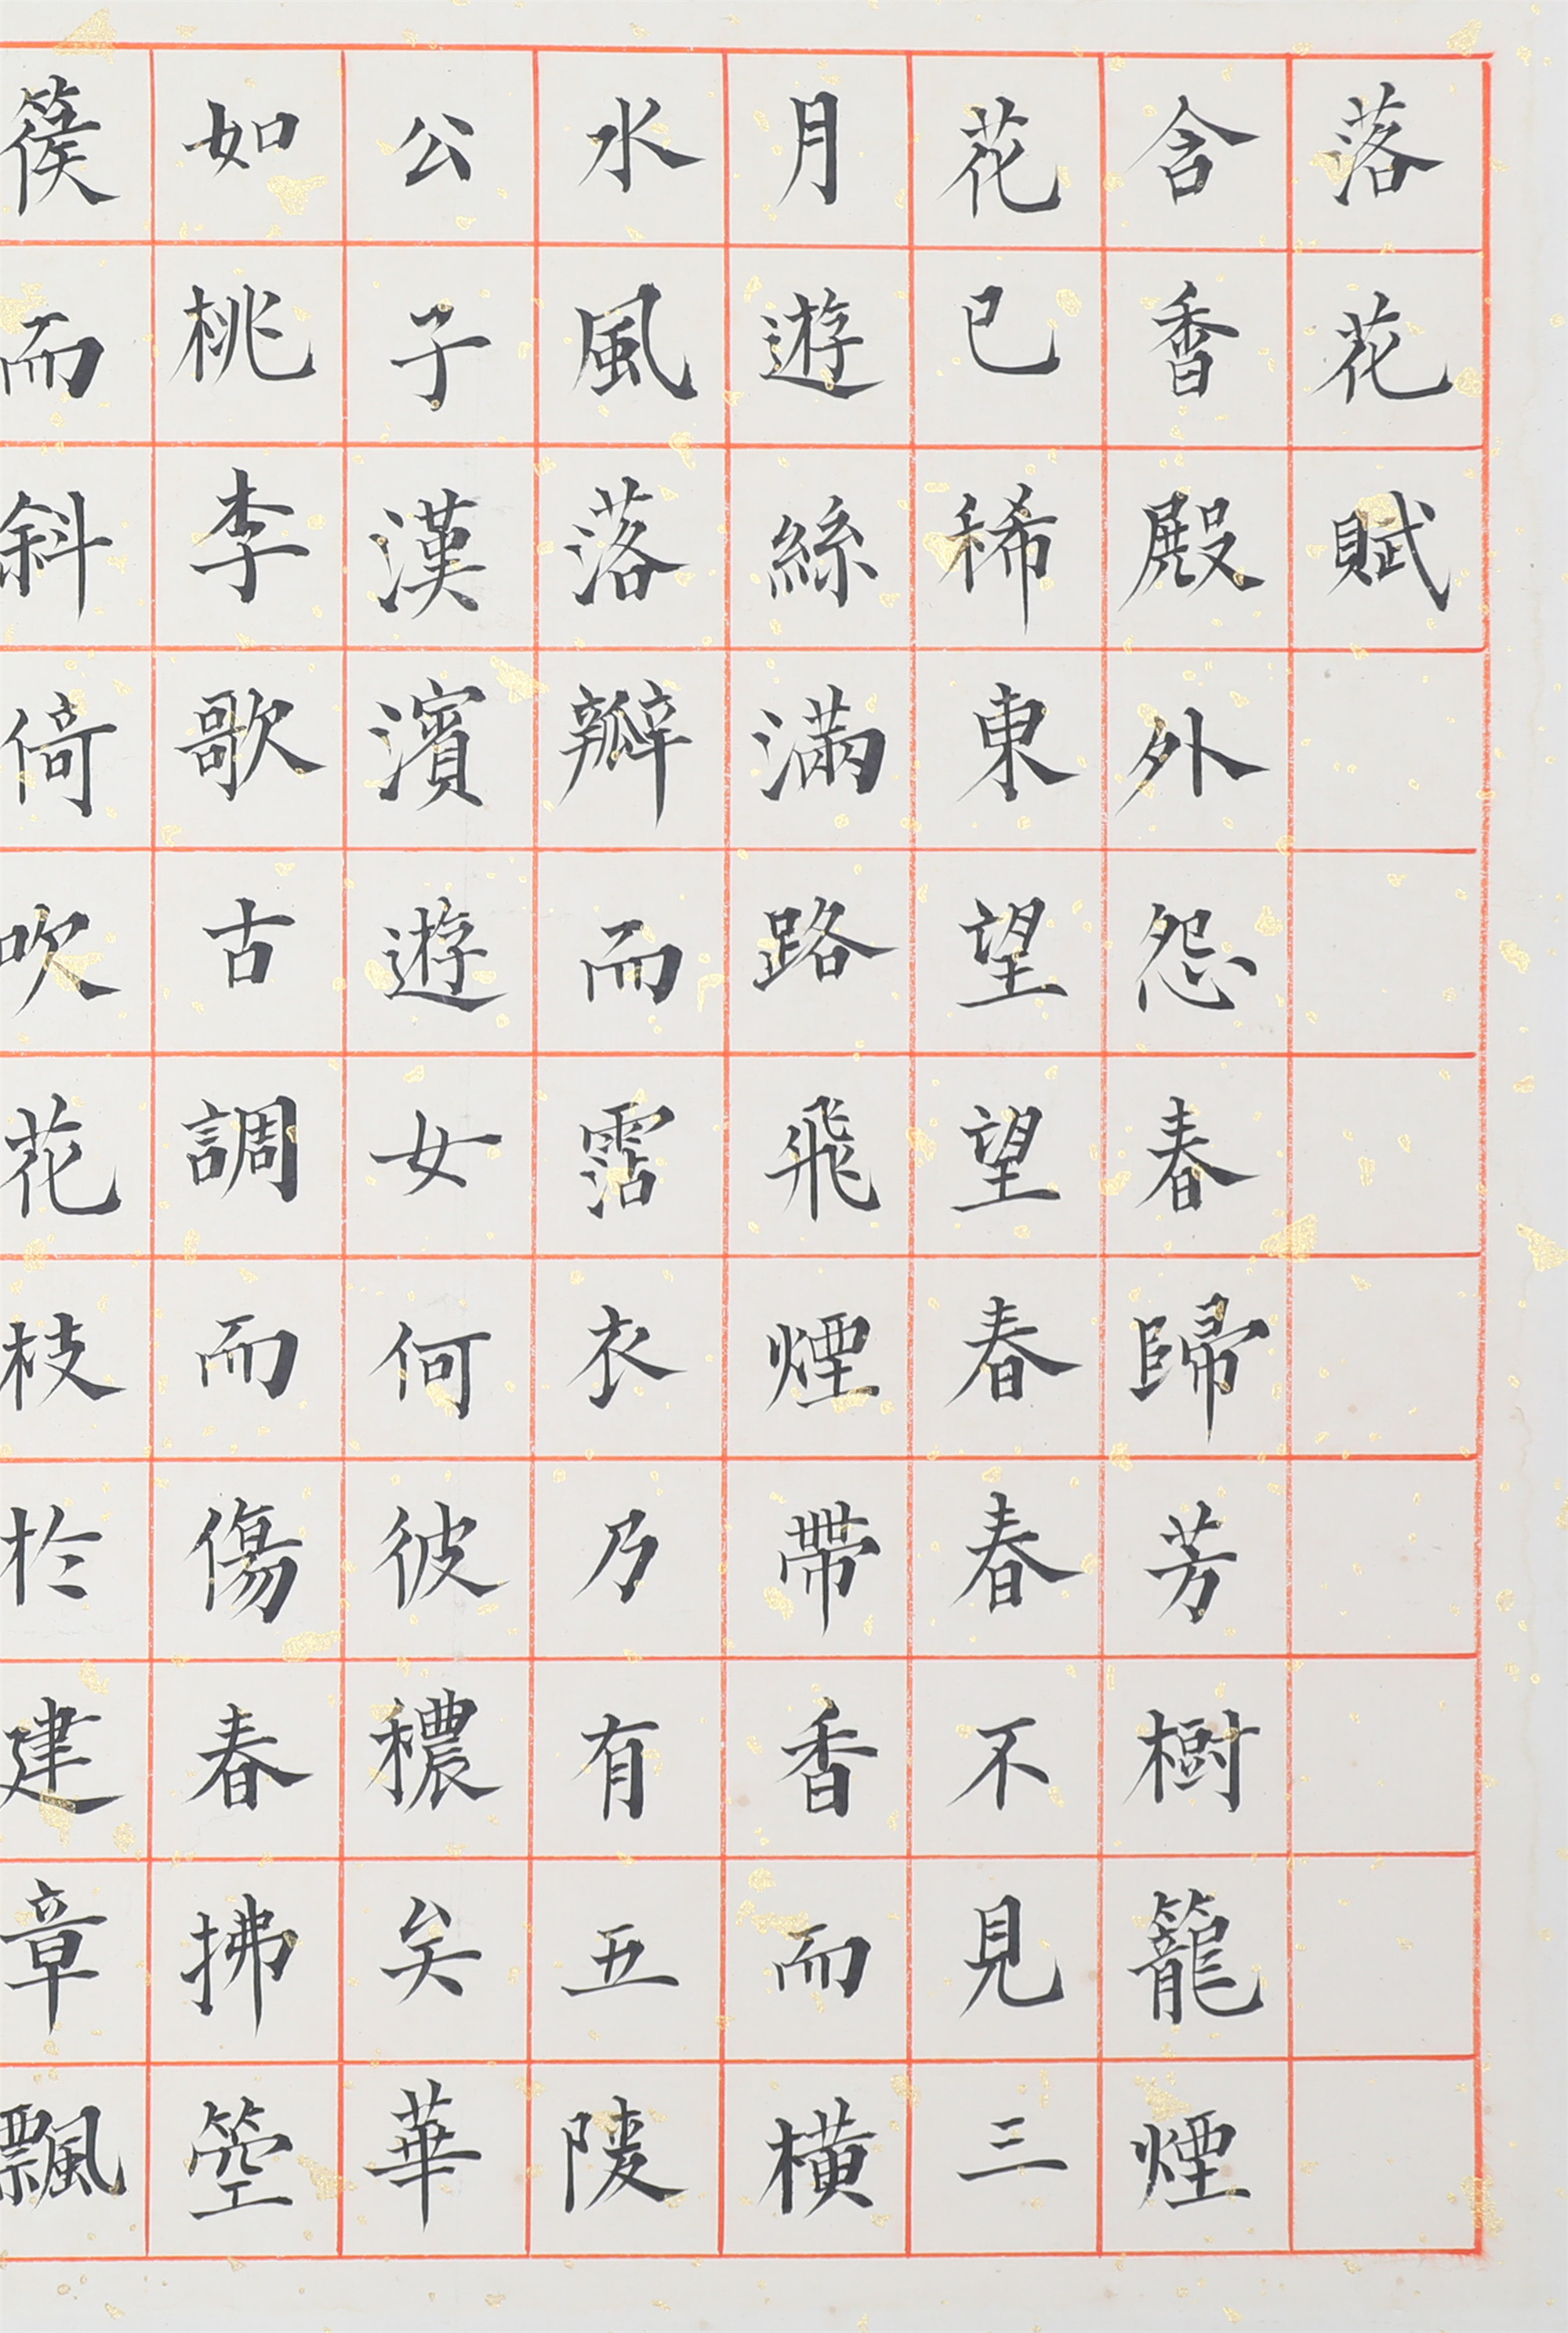 落花賦
含香殿外怨春歸芳樹籠煙
花已稀東望望春春不見三
月遊絲滿路飛煙帶香而橫
水風落瓣而霑衣乃有五陵
公子漢濱遊女何彼穠矣華
如桃李歌古調而傷春拂箜
篌而斜倚吹花枝於建章飄